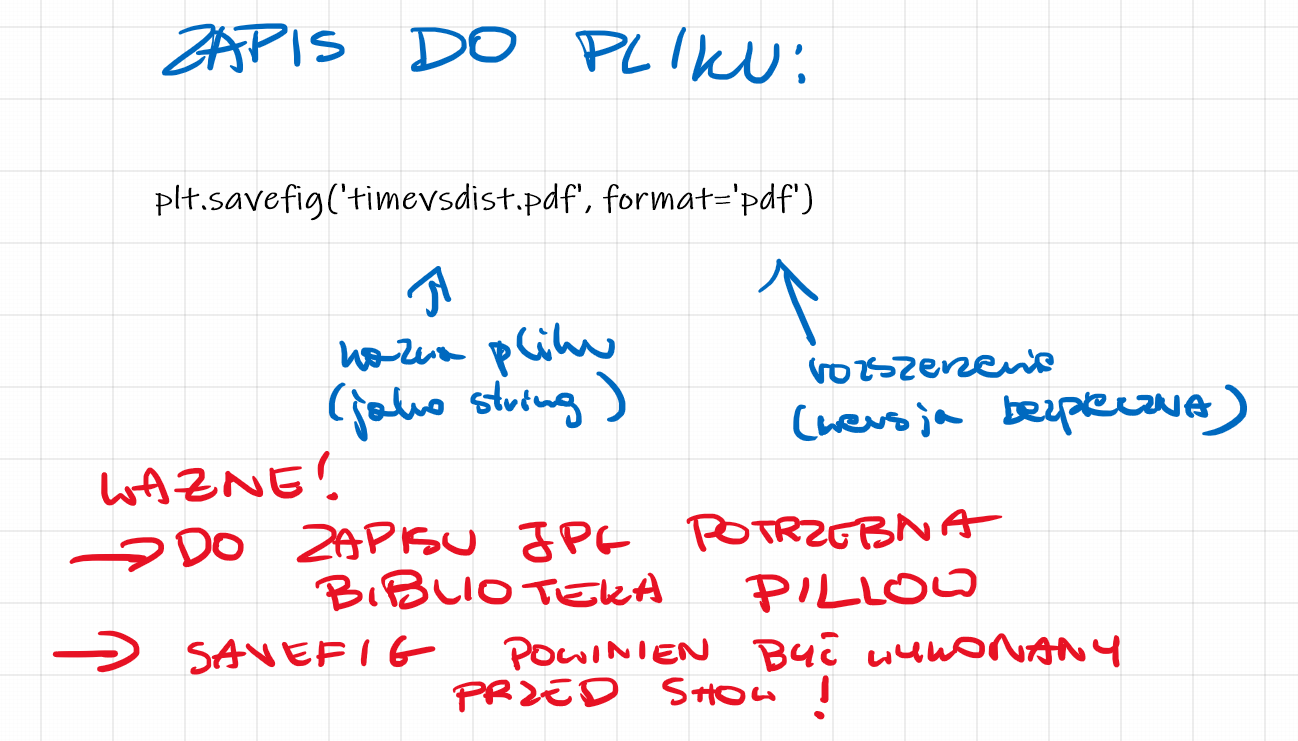 ZAPIS DO PLIKU:
plt.savefig('timevsdist.pdf', format='pdf')
nazwa pliku
(jako string)
rozszerzenie
(wersja bezpieczna)
WAŻNE!
→ DO ZAPISU JPG POTRZEBNA
BIBLIOTEKA PILLOW
→ SAVEFIG POWINIEN BYĆ WYKONANY
PRZED SHOW!